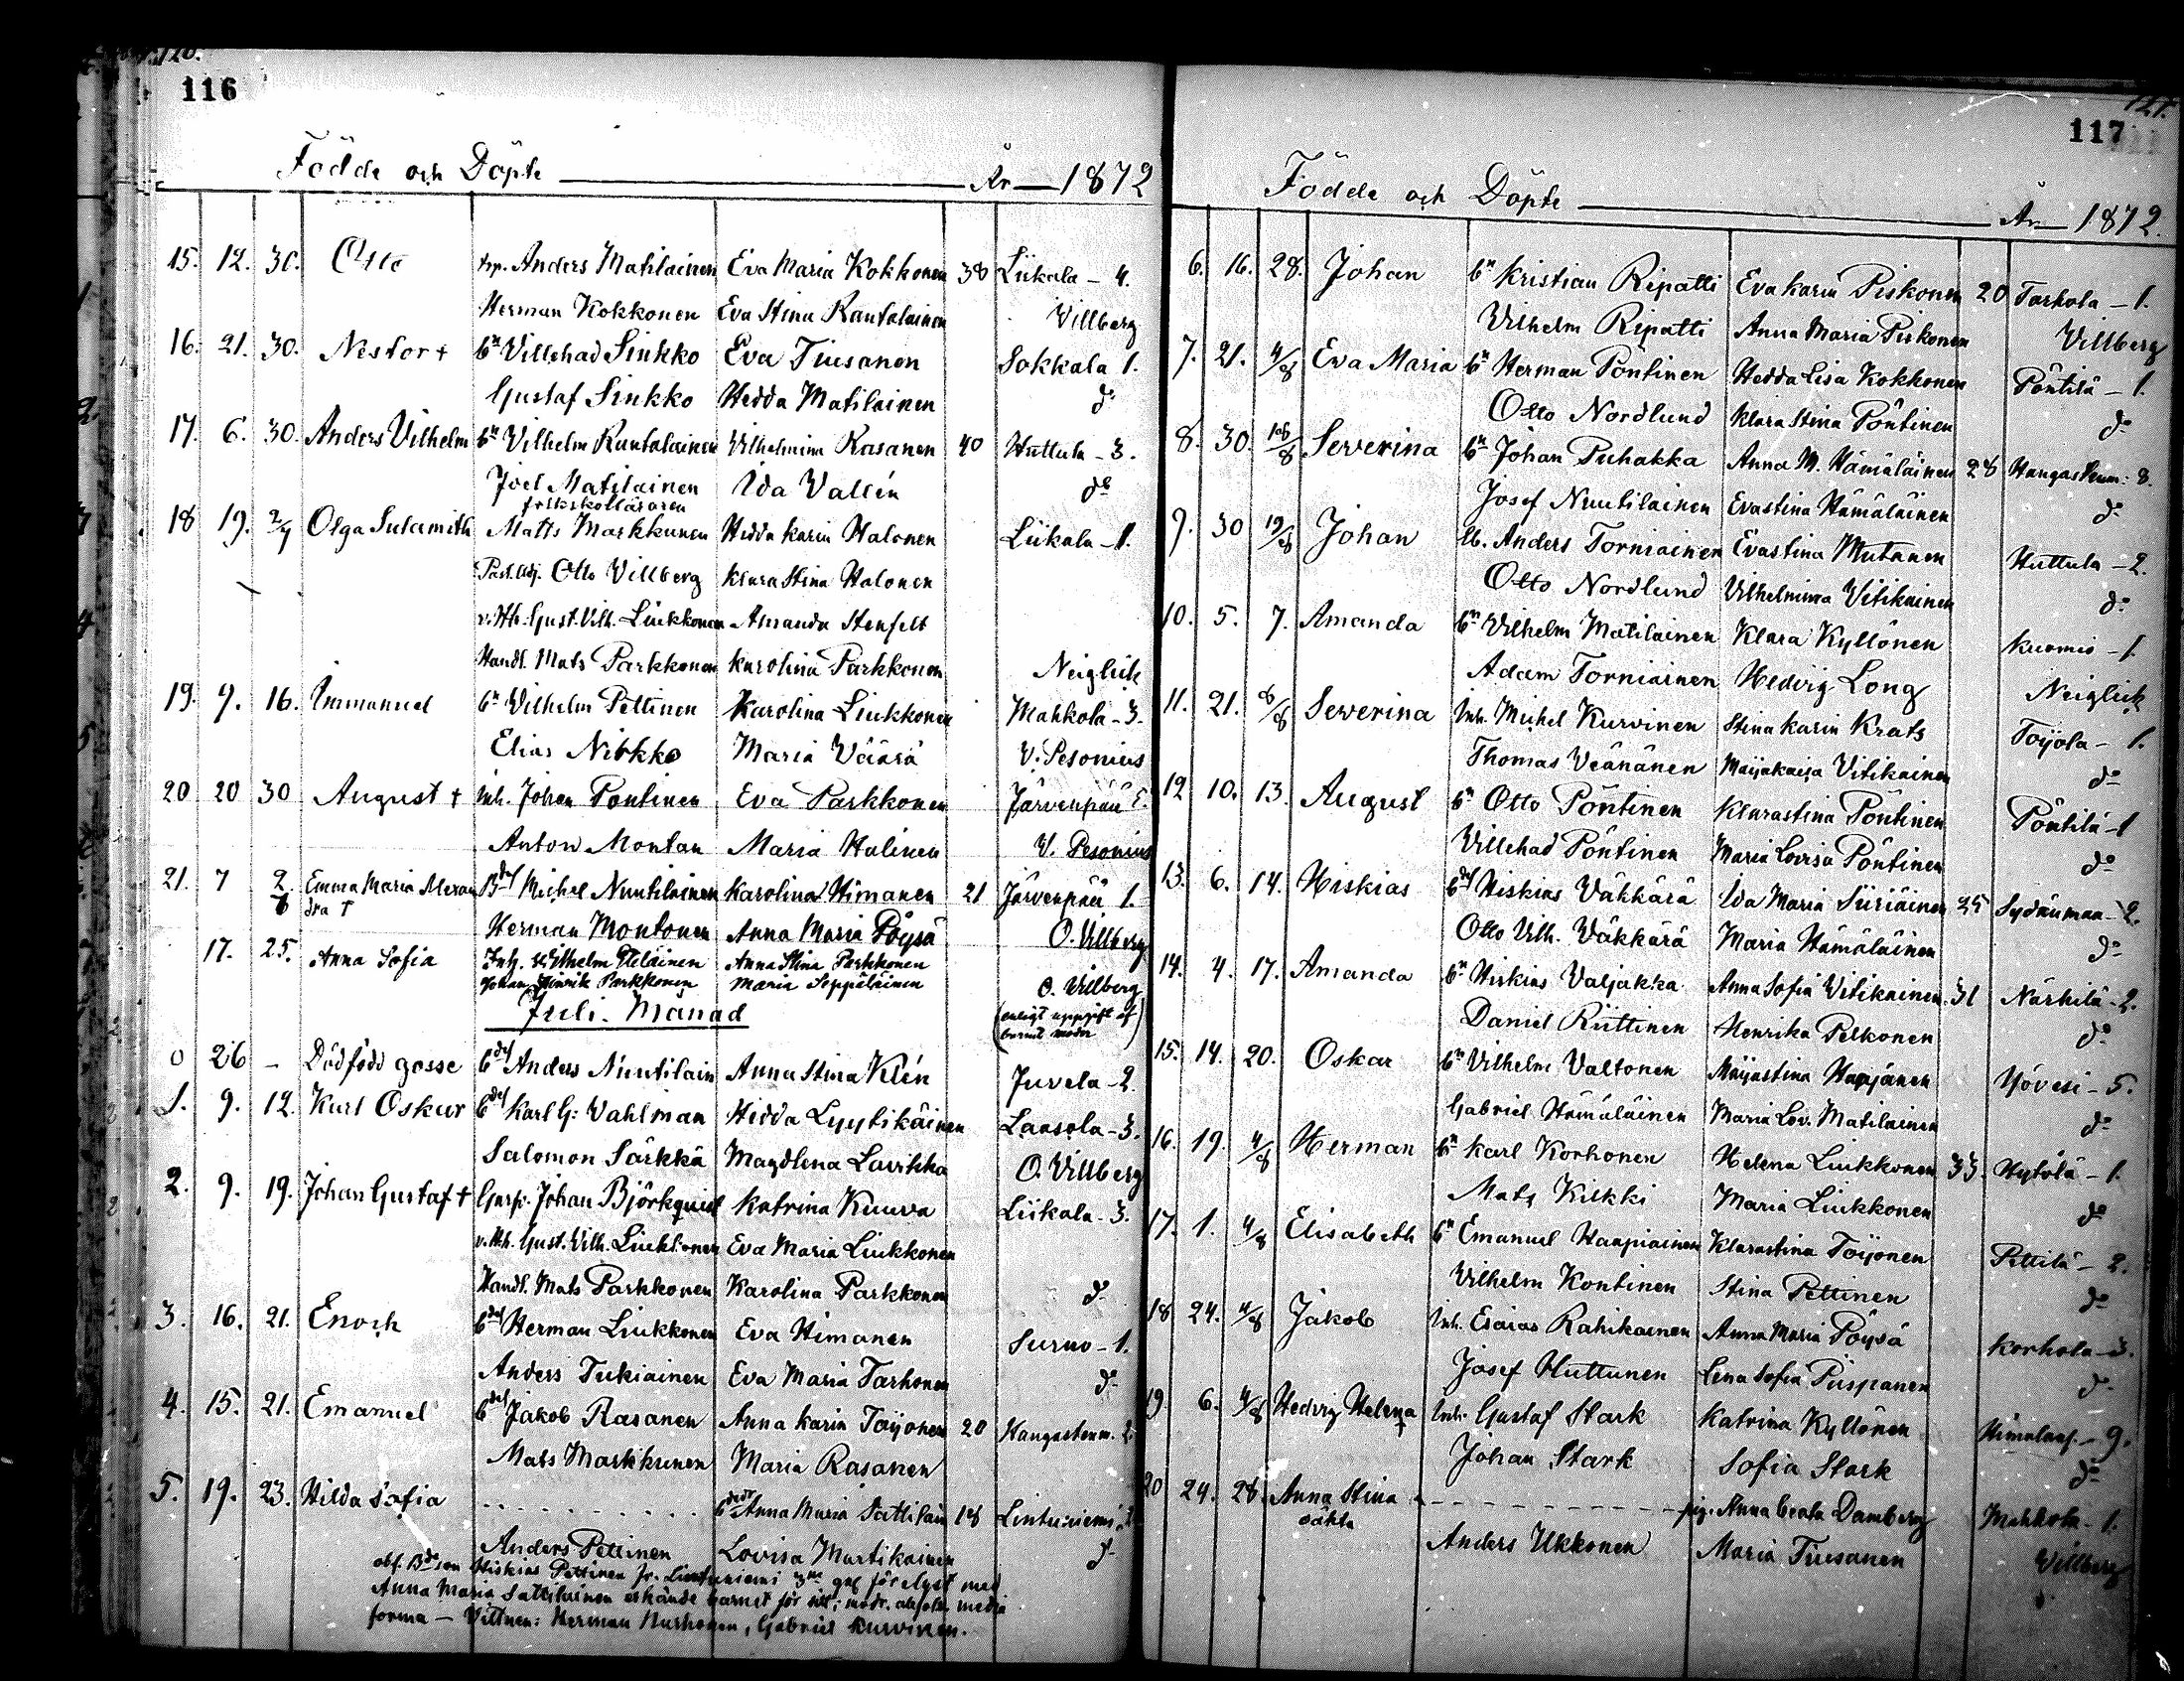 116
Födde och Döpte År 1872
15. 12. 30. Otto trp. Anders Matilainen Eva Maria Kokkonen 38 Liikala - 4.
Herman Kokkonen Eva Stina Rantalainen Villberg
16. 21. 30. Nestor + bn Villehad Sinkko Eva Tiusanen Sokkala 1.
Gustaf Sinkko Hedda Matilainen do
17. 6. 30. Anders Vilhelm bn Vilhelm Rantalainen Vilhelmina Rasanen 40 Huttula - 3.
Joel Matilainen Ida Vallén do
folkskolläraren
18 19. 2/7 Olga Sulamith Matts Markkunen Hedda Karin Halonen Liikala - 1.
Past. adj. Otto Villberg Klara Stina Halonen
v. Hh. Gust. Vilh. Liukkonen Amanda Stenfelt
Handl. Mats Parkkonen Karolina Parkkonen Neiglick
19. 9. 16. Immanuel bn Vilhelm Pettinen Karolina Liukkonen Mahkola - 3.
Elias Nirkko Maria Väärä V. Pesonius
20 20 30 August + Inh. Johan Pöntinen Eva Parkkonen Järvenpää
Anton Montan Maria Halinen V. Pesonius
21. 7 2/8 Emma Maria Alexan Bdsf Michel Nuutilainen Karolina Himanen 21 Järvenpää 1.
dra † Herman Montonen Anna Maria Pöysä O. Villberg
17. 25. Anna Sofia Inh. Wilhelm Eteläinen Anna Stina Parkkonen
Johan Henrik Parkkonen Maria Seppäläinen O. Villberg
Juli. Månad (enligt uppgift af
barnets moder)
0 26 - Dödfödd gosse bdsf Anders Nuutilain Anna Stina Klén Juvela - 2.
1. 9. 12. Karl Oskar bdsf Karl G: Vahlman Hedda Lyytikäinen Laasola - 3.
Salomon Särkkä Magdlena Lavikka O. Villberg
2. 9. 19. Johan Gustaf + Garf. Johan Björkquist Katrina Kuuva Liikala - 3.
v. Hh. Gust. Vilh. Liukkonen Eva Maria Liukkonen
Handl. Mats Parkkonen Karolina Parkkonen do
3. 16. 21. Enoch bdsf Herman Liukkonen Eva Himanen Suruo - 1.
Anders Tukiainen Eva Maria Tarhonen do
4. 15. 21. Emanuel bdsf Jakob Rasanen Anna Karin Toijonen 20 Kangasteum. 2.
Mats Markkunen Maria Rasanen
5. 19. 23. Hilda Sofia - - - - - - bdotr Anna Maria Sattilain 18 Lintuniemi
Anders Pettinen Lovisa Martikainen do
obs. Bdeson Hiskias Pettinen fr. Lintuniemi 3ne ggr förelyst med
Anna Maria Sattilainen erkände barnet för sitt; modr. absolv. media
forma - Vittnen: Herman Nurhonen, Gabriel Kurvinen.
117
Födde och Döpte År 1872.
6. 16. 28. Johan bn Kristian Ripatti Eva Karin Piskonen 20 Tarhola - 1.
Vilhelm Ripatti Anna Maria Piskonen Villberg
7. 21. 4/8 Eva Maria bn Herman Pöntinen Hedda Lisa Kokkonen Pöntilä - 1.
Otto Nordlund Klara Stina Pöntinen do
8. 30. 18/8 Severina bn Johan Puhakka Anna M. Hämäläinen 28 Kangasteum: 8.
Josef Nuutilainen Evastina Hämäläinen do
9. 30 19/8 Johan lb. Anders Torniainen Evastina Mutanen Huttula - 2.
Otto Nordlund Vilhelmina Vitikainen do
10. 5. 7. Amanda bn Vilhelm Matilainen Klara Kyllönen Kuomio - 1.
Adam Torniainen Hedvig Long Neiglick
11. 21. 8/8 Severina Inh. Michel Kurvinen Stina Karin Krats Toijola - 1.
Thomas Väänänen Maijakaisa Vitikainen do
12 10. 13. August bn Otto Pöntinen Klarastina Pöntinen Pöntilä - 1
Villehad Pöntinen Maria Lovisa Pöntinen do
13. 6. 14. Hiskias bdsf Hiskias Väkkärä Ida Maria Siiriäinen 25 Sydänmaa - 2.
Otto Vilh. Väkkärä Maria Hämäläinen do
14. 4. 17. Amanda bn Hiskias Valjakka Anna Sofia Vitikainen 31 Närhilä - 2.
Daniel Riittinen Henrika Pelkonen do
15. 14. 20. Oskar bn Vilhelm Valtonen Maijastina Haajanen Yövesi - 5.
Gabriel Hämäläinen Maria Lov. Matilainen do
16. 19. 4/8 Herman bn Karl Korhonen Helena Liukkonen 33. Hytölä - 1.
Mats Kilkki Maria Liukkonen do
17. 1. 4/8 Elisabeth bn Emanuel Haapiainen Klarastina Toijonen Pettilä - 2.
Vilhelm Kontinen Stina Pettinen do
18 24. 4/8 Jakob Inh. Esaias Rahikainen Anna Maria Pöysä Korhola - 3.
Josef Huttunen Lena Sofia Piispanen do
19. 6. 4/8 Hedvig Helena + Inh. Gustaf Stark Katrina Kyllönen Himalans. - 9.
Johan Stark Sofia Stark do
20 24. 28. Anna Stina - - - - - - pig. Anna Beata Damberg Mahkola - 1.
oäkta Anders Ukkonen Maria Tiusanen Villberg